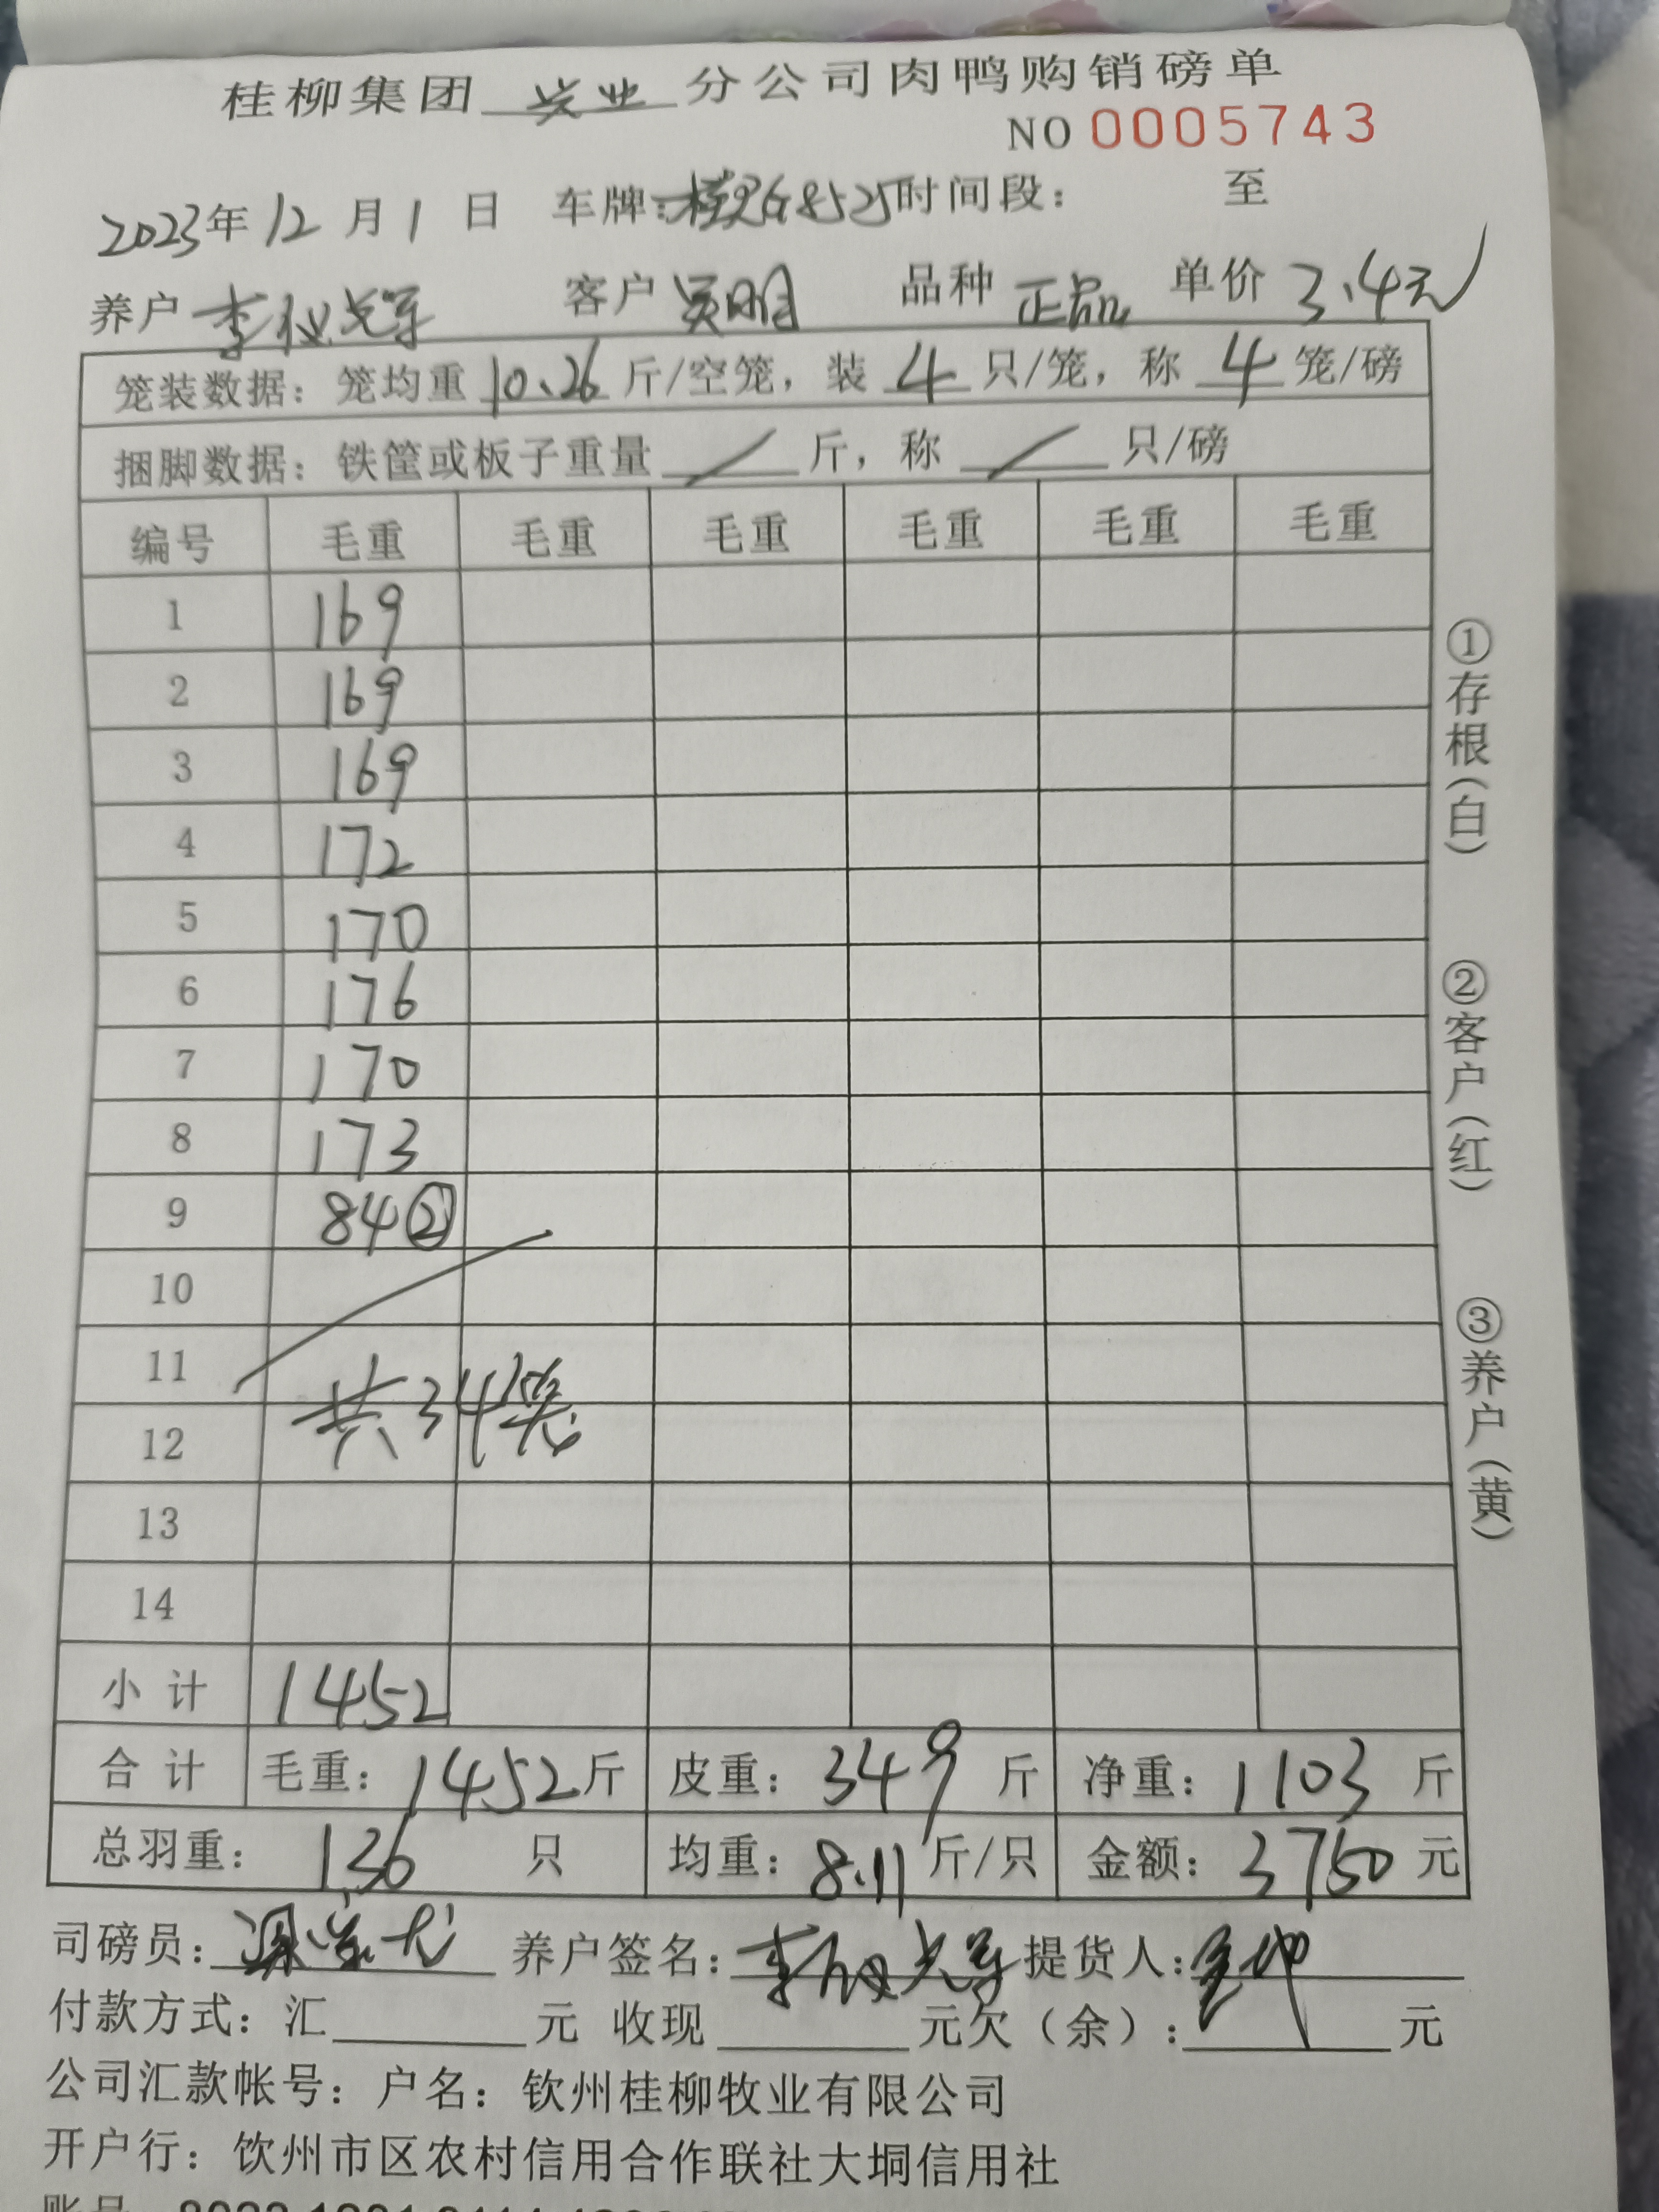 桂柳集团 兴业 分公司肉鸭购销磅单
NO 0005743
2023年12月1日 车牌: G8525 时间段: 至
养户 李 客户 吴明 品种 正品 单价 3.4元
笼装数据: 笼均重 10.26 斤/空笼, 装 4 只/笼, 称 4 笼/磅
捆脚数据: 铁筐或板子重量 / 斤, 称 / 只/磅
编号 毛重 毛重 毛重 毛重 毛重 毛重
1 169
2 169
3 169
4 172
5 170
6 176
7 170
8 173
9 84②
10
11
共34笼
12
13
14
小计 1452
合计 毛重: 1452斤 皮重: 349 斤 净重: 1103 斤
总羽重: 136 只 均重: 8.11 斤/只 金额: 3750 元
司磅员: 养户签名: 李 提货人:
付款方式: 汇 元 收现 元欠(余): 元
公司汇款帐号: 户名: 钦州桂柳牧业有限公司
开户行: 饮州市区农村信用合作联社大垌信用社
①存根(白)
②客户(红)
③养户(黄)